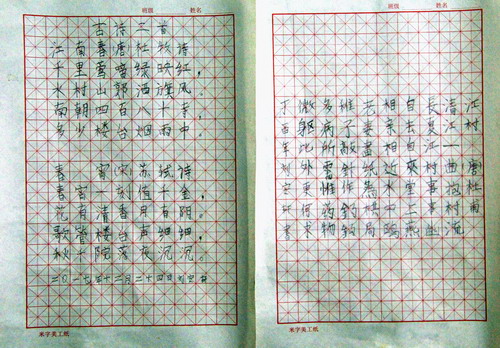 班级 姓名
古诗三首
江南春唐杜牧诗
千里莺啼绿映红，
水村山郭酒旗风。
南朝四百八十寺，
多少楼台烟雨中
春宵宋苏轼诗
春宵一刻值千金，
花有清香月有阴。
歌管楼台声细细，
秋千院落夜沉沉。
二〇一七年十二月二十四日
米字美工纸
班级 姓名
江村 唐杜甫
清江一曲抱村流
長夏江村事事幽
自去自來堂上燕
相亲相近水中鷗
老妻畫紙為棋局
稚子敲針作釣鈎
多病所需惟药物
微軀此外更何求
米字美工纸